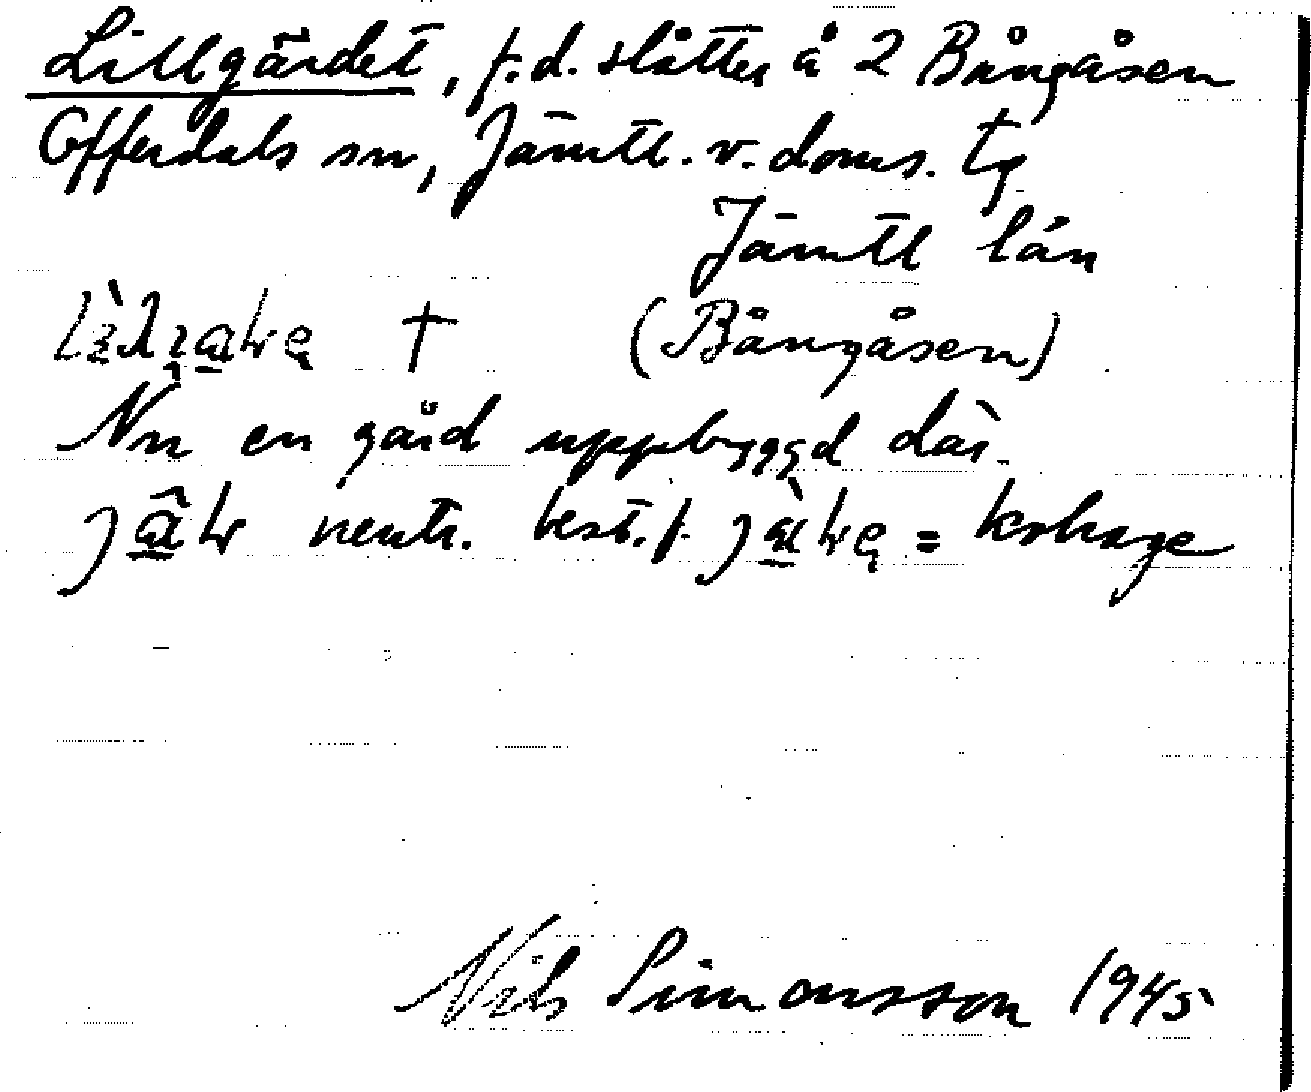 Lillgärdet, f.d. slåtter å 2 Bångåsen
Offerdals sn, Jämtl. v. doms. tg
Jämtl län
† (Bångåsen)
Nu en gård uppbyggd där.
neutr. best. f. = kohage
Nils Simonsson 1945